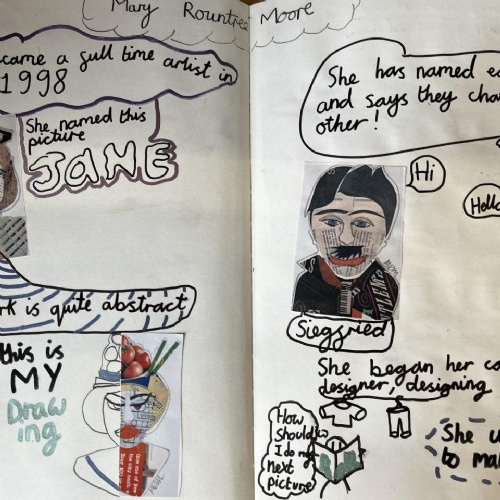 Mary Rountree Moore
came a full time artist in
1998
She named this
picture
JANE
rk is quite abstract
this is
MY
Draw
ing
She has named ea
and says they cha
other!
Hi
Hello
Siegfried
She began her ca
designer, designing
How
Should
I do my
next
picture
She u
to ma